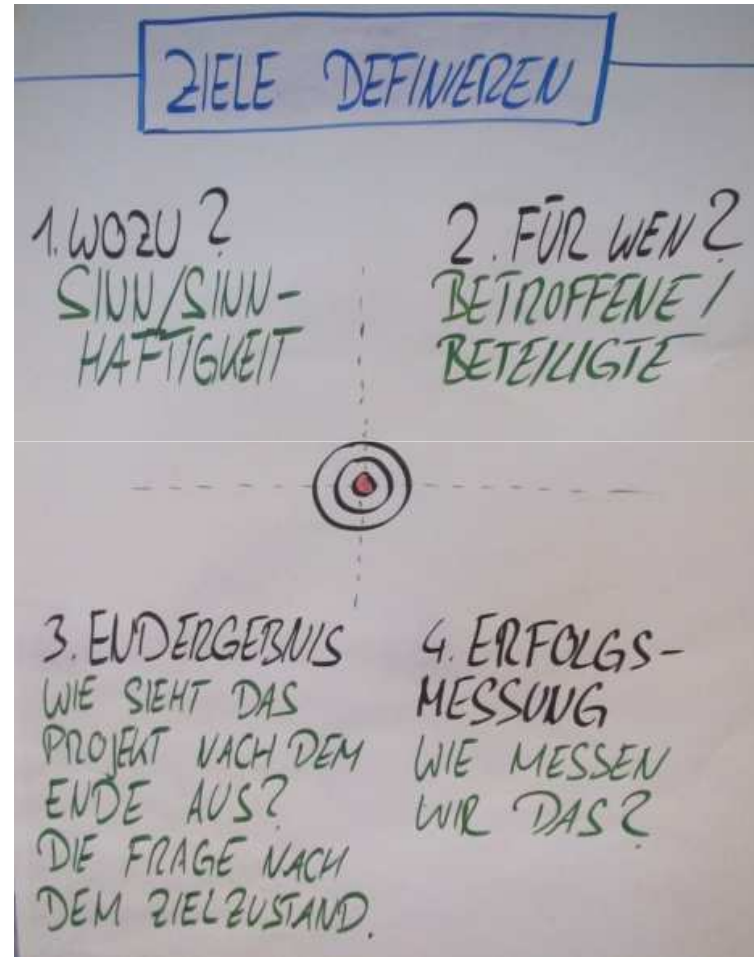 ZIELE DEFINIEREN
1. WOZU?
SINN/SINN-
HAFTIGKEIT
2. FÜR WEN?
BETROFFENE/
BETEILIGTE
3. ENDERGEBNIS
WIE SIEHT DAS
PROJEKT NACH DEM
ENDE AUS?
DIE FRAGE NACH
DEM ZIELZUSTAND.
4. ERFOLGS-
MESSUNG
WIE MESSEN
WIR DAS?